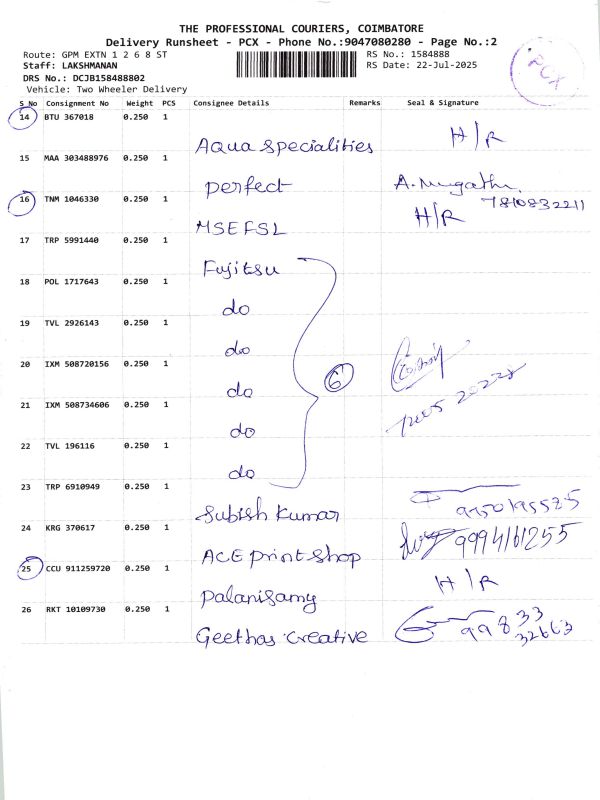 THE PROFESSIONAL COURIERS, COIMBATORE
Delivery Runsheet - PCX - Phone No.:9047080280 - Page No.:2
Route: GPM EXTN 1 2 6 8 ST
RS No.: 1584888
Staff: LAKSHMANAN
RS Date: 22-Jul-2025
DRS No.: DCJB158488802
Vehicle: Two Wheeler Delivery
PCX
S_No Consignment No Weight PCS Consignee Details Remarks Seal & Signature
14 BTU 367018 0.250 1
Aqua specialities H/R
15 MAA 303488976 0.250 1
perfect
7810832211
16 TNM 1046330 0.250 1
MSEFSL H/R
17 TRP 5991440 0.250 1
Fujitsu
18 POL 1717643 0.250 1
do
19 TVL 2926143 0.250 1
do
20 IXM 508720156 0.250 1
do
6
21 IXM 508734606 0.250 1
do
22 TVL 196116 0.250 1
do
23 TRP 6910949 0.250 1
Subish Kumar
24 KRG 370617 0.250 1
ACE print shop 9994161255
25 CCU 911259720 0.250 1
Palanisamy H/R
26 RKT 10109730 0.250 1
Geethas creative 99833
32663